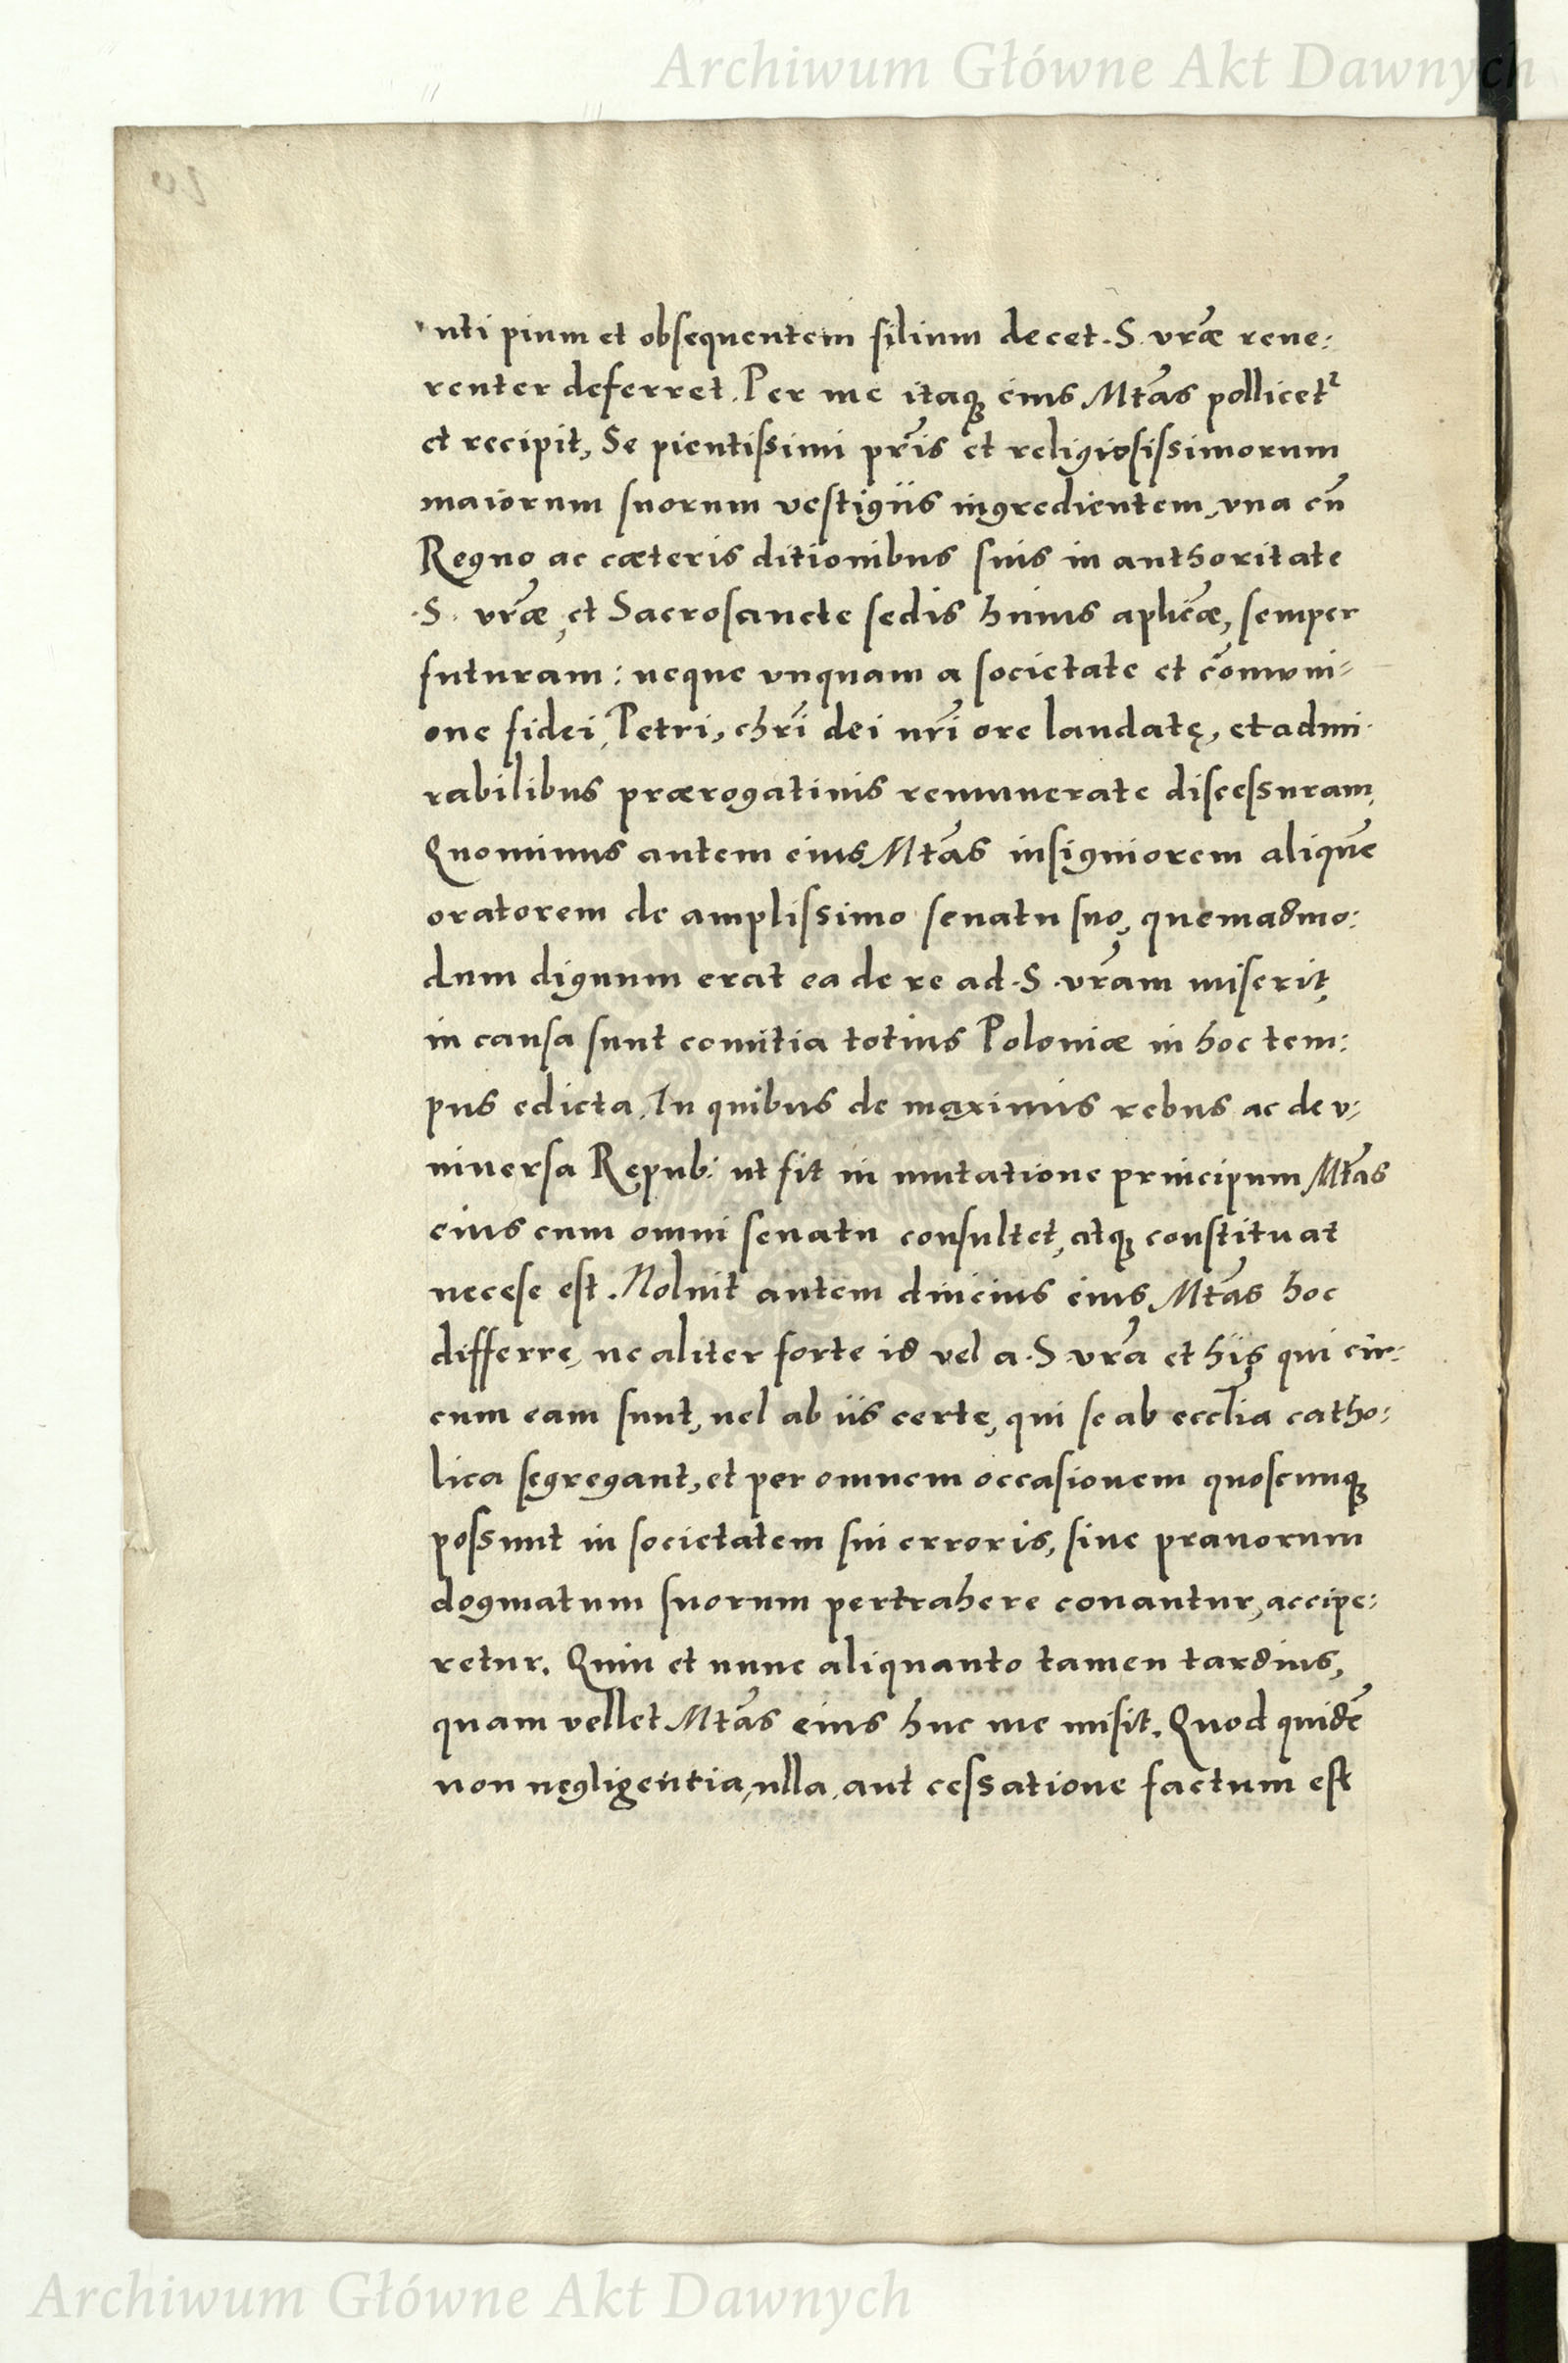 Archiwum Główne Akt Dawnych
uti pium et obsequentem filium decet. S. vrãe reue:
renter deferret. Per me itaqꝫ eius Mtãs pollicetʳ
et recipit, Se pientissimi prĩs et religiosissimorum
maiorum suorum vestigiis ingredientem, vna cũ
Regno ac cæteris ditionibus suis in authoritate
.S. vrãe, et Sacrosancte sedis huius aplicæ̃, semper
futuram: neque vnquam a societate et cõmuni=
one fidei, Petri, chrĩ dei nrĩ ore laudatę, et admi-
rabilibus prærogatiuis remunerate discessuram,
Quominus autem eius Mtãs insigniorem aliquẽ
oratorem de amplissimo senatu suo, quemadmo:
dum dignum erat ea de re ad .S. vrãm miserit,
in causa sunt comitia totius Poloniæ in hoc tem:
pus edicta. In quibus de maximis rebus ac de v:
niuersa Repub: ut fit in mutatione principum Mtãs
eius cum omni senatu consultet, atqꝫ constituat
necese est. Noluit autem diucius eius Mtãs hoc
differre, ne aliter forte id vel a .S. vrã et hiis qui cir:
cum eam sunt, uel ab iis certe, qui se ab ecclĩa catho:
lica segregant, et per omnem occasionem quoscunqꝫ
possunt in societatem sui erroris, siue prauorum
dogmatum suorum pertrahere conantur, accipe:
retur. Quin et nunc aliquanto tamen tardius,
quam vellet Mtãs eius huc me misit. Quod quidẽ
non negligentia, ulla, aut cessatione factum est
Archiwum Główne Akt Dawnych